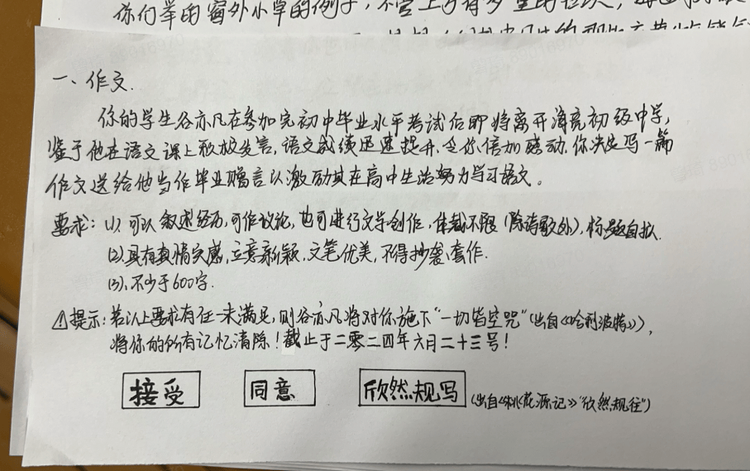 你们举的窗外小草的例子,不管上
一、作文.
你的学生谷亦凡在参加完初中毕业水平考试后即将离开浦亮初级中学,
鉴于他在语文课上积极发言,语文成绩迅速提升,令你倍加感动,你决定写一篇
作文送给他当作毕业赠言以激励其在高中生活努力学习语文。
要求:(1).可以叙述经历,可作议论,也可进行文学创作,体裁不限(除诗歌外),标题自拟.
(2).具有真情实感,立意新颖,文笔优美,不得抄袭、套作.
(3).不少于600字.
⚠提示:若以上要求有任一未满足,则谷亦凡将对你施下“一切皆空咒”(出自《哈利波特》),
将你的所有记忆清除!截止于二零二四年六月二十三号!
接受 同意 欣然规写(出自《桃花源记》“欣然规往”)